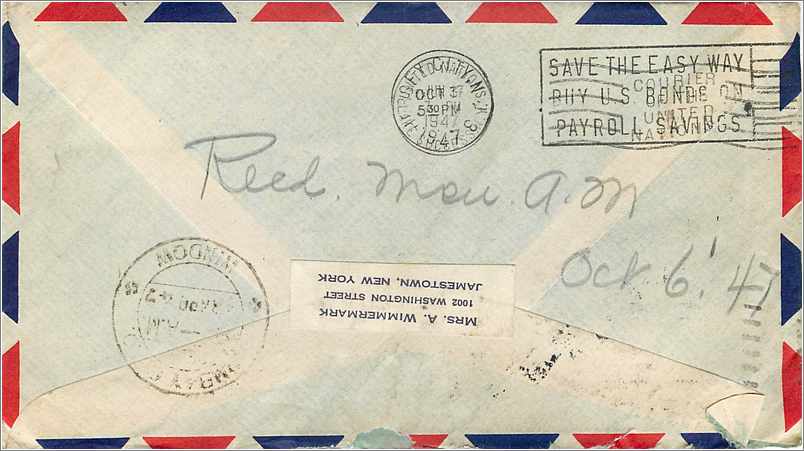 OCT 3
5 30 PM
1947
SAVE THE EASY WAY
BUY U.S. BONDS ON
PAYROLL SAVINGS
COURIER
UNITED
NATIONS
Reed. Mon. A.M
Oct 6' 47
WINDOW
MRS. A. WIMMERMARK
1002 WASHINGTON STREET
JAMESTOWN, NEW YORK